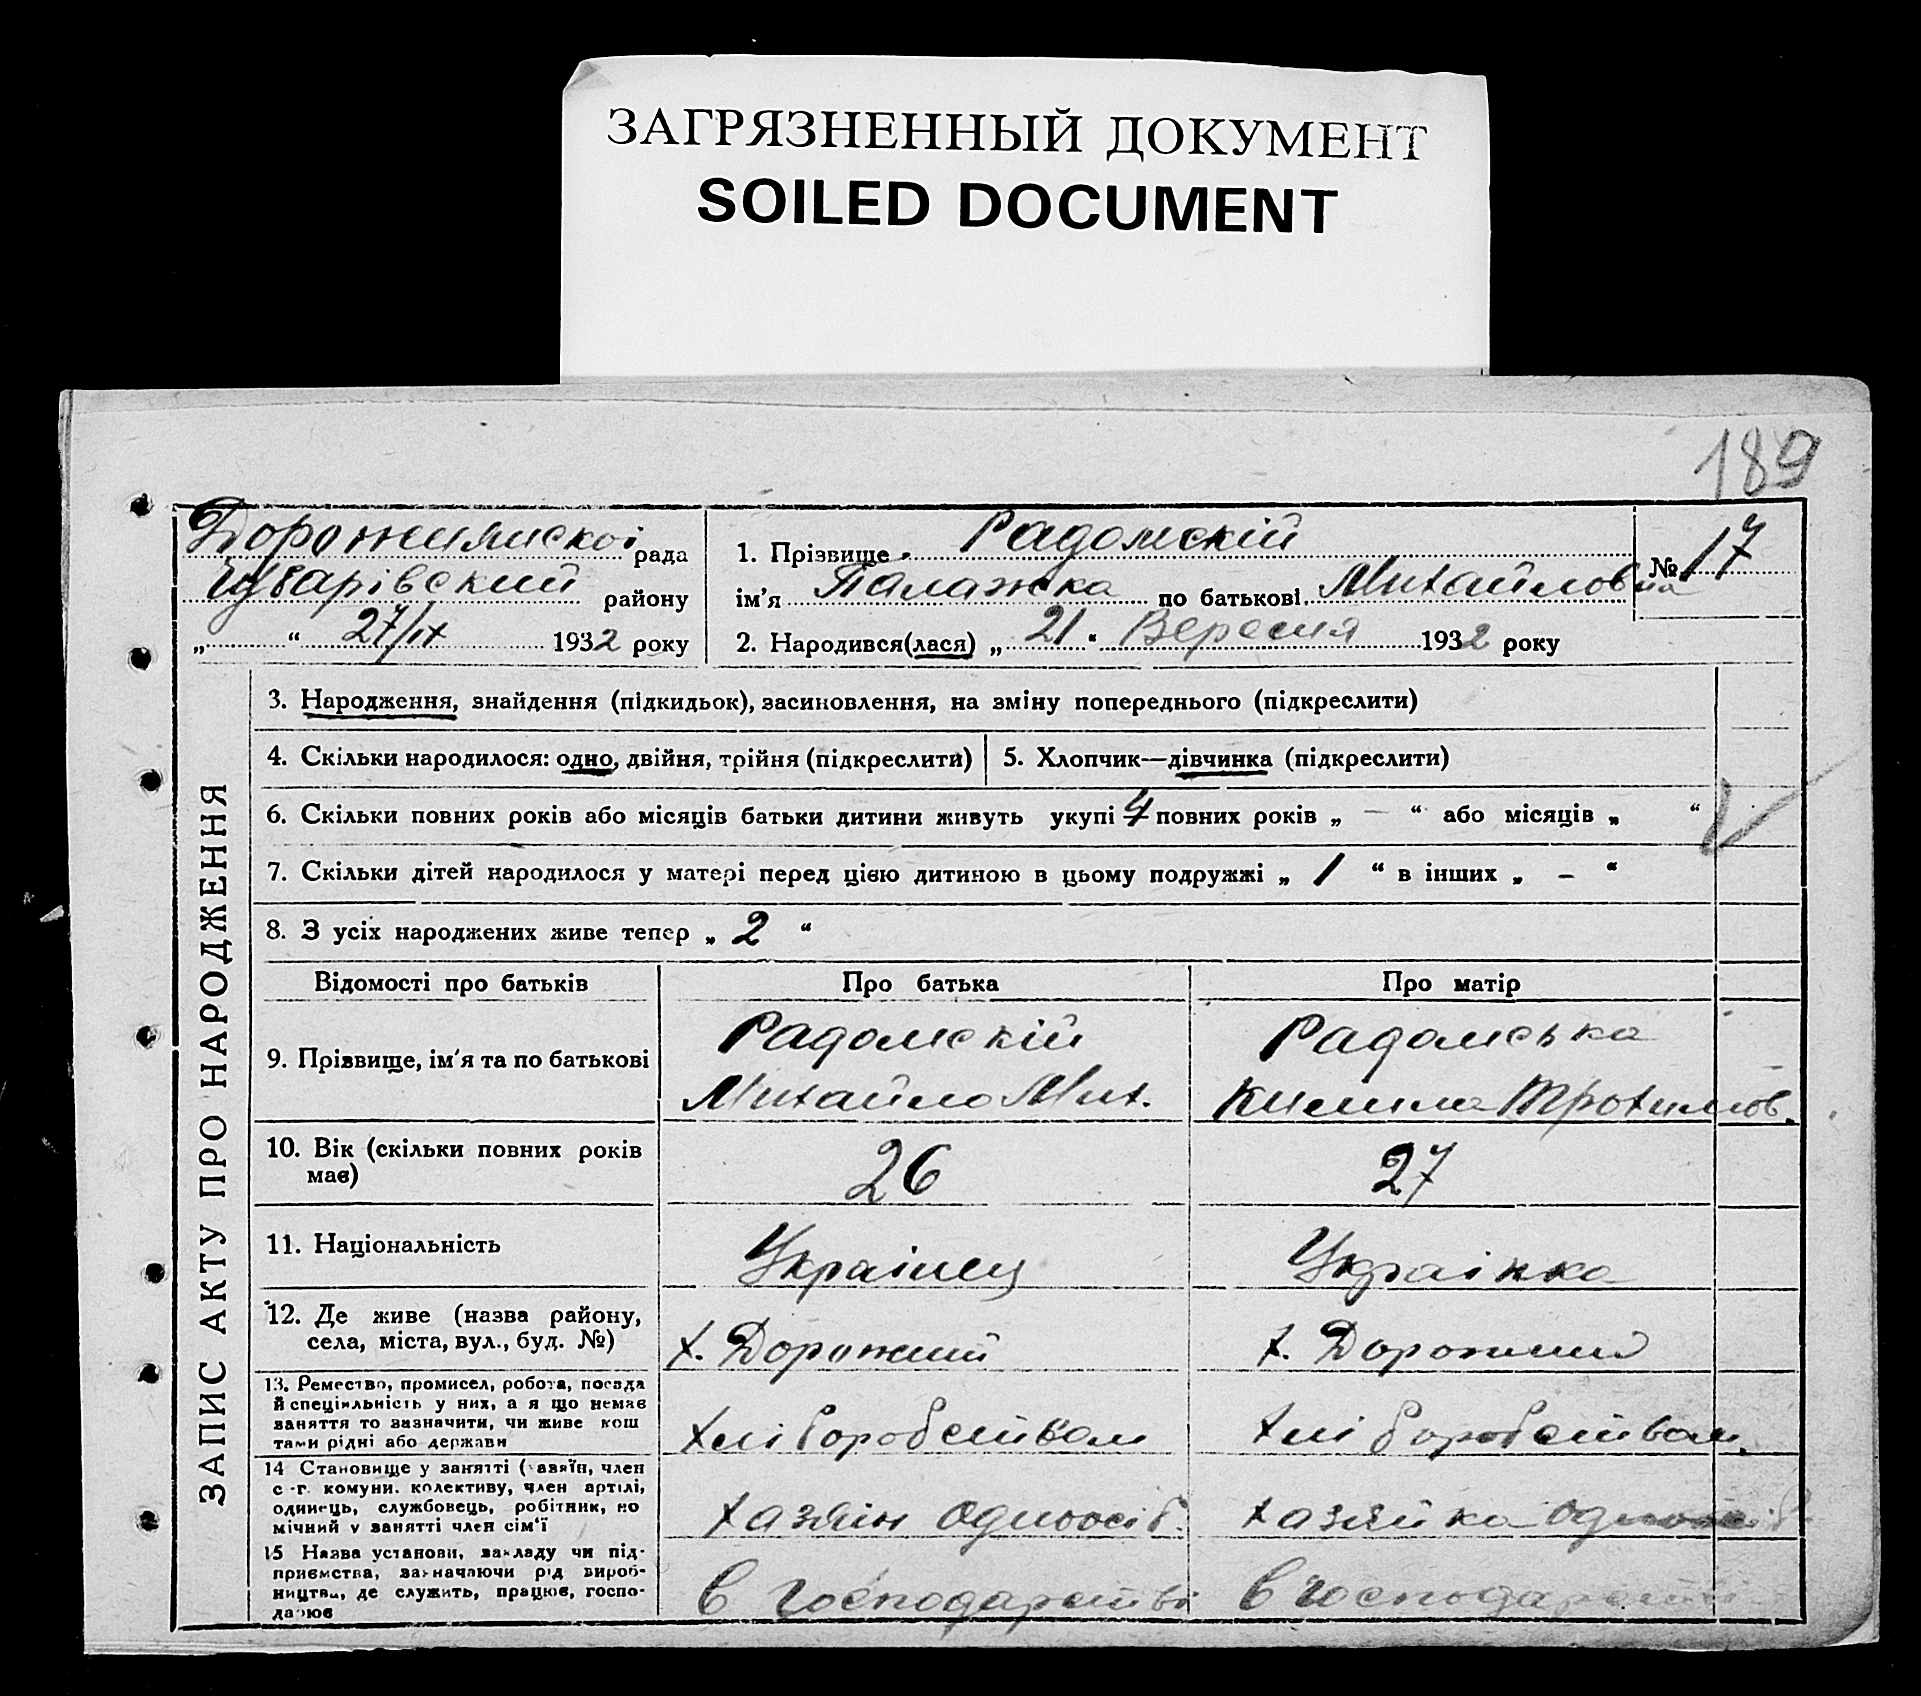 ЗАГРЯЗНЕННЫЙ ДОКУМЕНТ
SOILED DOCUMENT
189
рада
Чубарівский району
„ “ 27/IX 1932 року
1. Прізвище Радомскій
ім'я Палажка по батькові Михайловна
2. Народився(лася) „ 21 “ Вересня 1932 року
№ 17
ЗАПИС АКТУ ПРО НАРОДЖЕННЯ
3. Народження, знайдення (підкидьок), засиновлення, на зміну попереднього (підкреслити)
4. Скільки народилося: одно, двійня, трійня (підкреслити)
5. Хлопчик—дівчинка (підкреслити)
6. Скільки повних років або місяців батьки дитини живуть укупі 4 повних років „ — “ або місяців „ “
7. Скільки дітей народилося у матері перед цією дитиною в цьому подружжі „ 1 “ в інших „ – “
8. З усіх народжених живе тепер „ 2 “
Відомості про батьків Про батька Про матір
9. Прізвище, ім'я та по батькові
Радомскій
Михайло Мих.
Радомська
Трохимов.
10. Вік (скільки повних років
має)
26
27
11. Національність
Украінец
Украінка
12. Де живе (назва району,
села, міста, вул., буд. №)
х. Дорожний
х. Дорожний
13. Ремество, промисел, робота, посада
й спеціяльність у них, а я що немає
заняття то зазначити, чи живе кош
тами рідні або держави
хліборобством
хліборобством.
14 Становище у занятті (хазяїн, член
с.-г. комуни. колективу, член артілі,
одинець, службовець, робітник, по
мічний у занятті член сім'ї
хазяін одноосіб.
хазяйка одноосіб.
15 Назва установи, закладу чи під-
приємства, зазначаючи рід вироб-
ництва, де служить, працює, госпо-
дарює
в господарстві
в господарстві